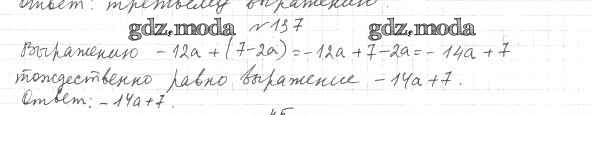 Ответ: третьему выражению.
gdz.moda №137 gdz.moda
Выражению -12a + (7-2a) = -12a + 7-2a = - 14a + 7
тождественно равно выражение -14a+7.
Ответ: - 14a+7.